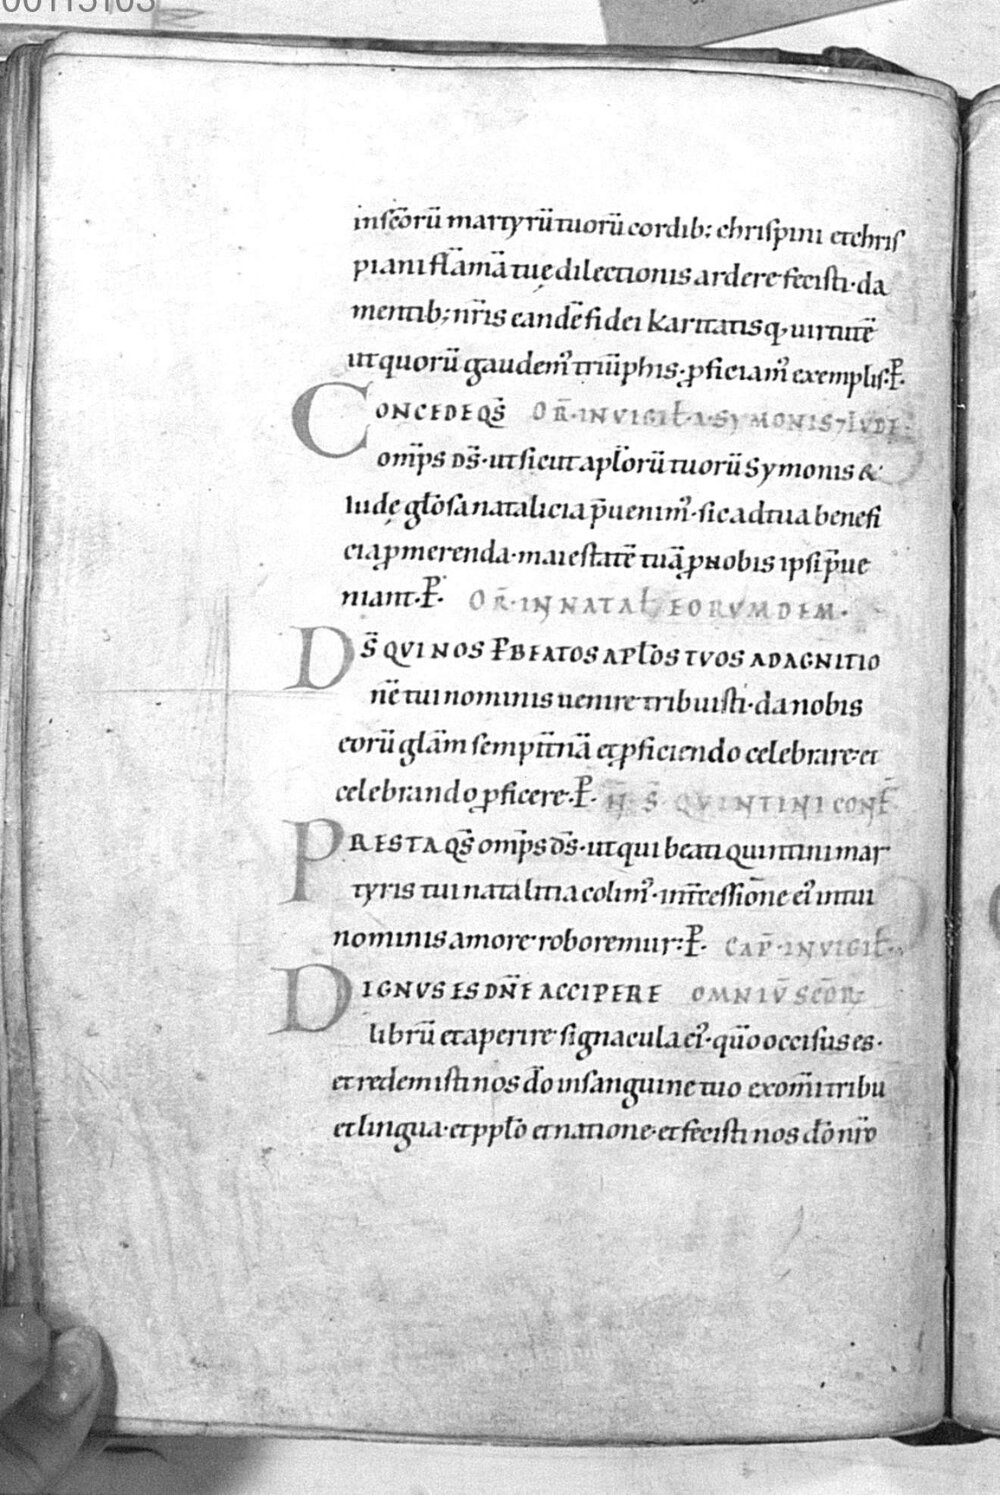 00113103
in sc̄orū martyrū tuorū cordib; chrispini et chris
piani flāmā tuę dilectionis ardere fecisti · da
mentib; nr̄is eandē fidei karitatisq; uirtutē
ut quorū gaudem᷒ triūphis · ꝓficiam᷒ exemplis · P̄.
CONCEDE QS̄ OR̄ · IN VIGIL̄ · A · SYMONIS ⁊ IVDE
om̄ps DS̄ · ut sicut apl̄orū tuorū Symonis &
Iudę gl̄osa natalicia p̄uenim᷒ · sic ad tua benefi
cia ꝓmerenda · maiestatē tuā ꝓ nobis ipsi p̄ue
niant · P̄. OR̄ · IN NATAL̄ EORVMDEM ·
DS̄ QUI NOS P̄ BEATOS APL̄OS TVOS AD AGNITIO
nē tui nominis uenire tribuisti · da nobis
eorū gl̄am sempit̄nā et ꝓficiendo celebrare · et
celebrando ꝓficere · P̄. N̄ · S̄ · QVINTINI CONF̄
PRESTA QS̄ om̄ps DS̄ · ut qui beati Quintini mar
tyris tui natalitia colim᷒ · int̄cessione ei᷒ in tui
nominis amore roboremur : P̄. CAP̄ · IN VIGIL̄ ·
DIGNVS ES DN̄E ACCIPERE OMNIV̄ SC̄OR
librū et aperire signacula ei᷒ · qūo occisus es ·
et redemisti nos d̄o in sanguine tuo ex om̄i tribu
et lingua · et ppl̄o et natione · et fecisti nos d̄o nr̄o